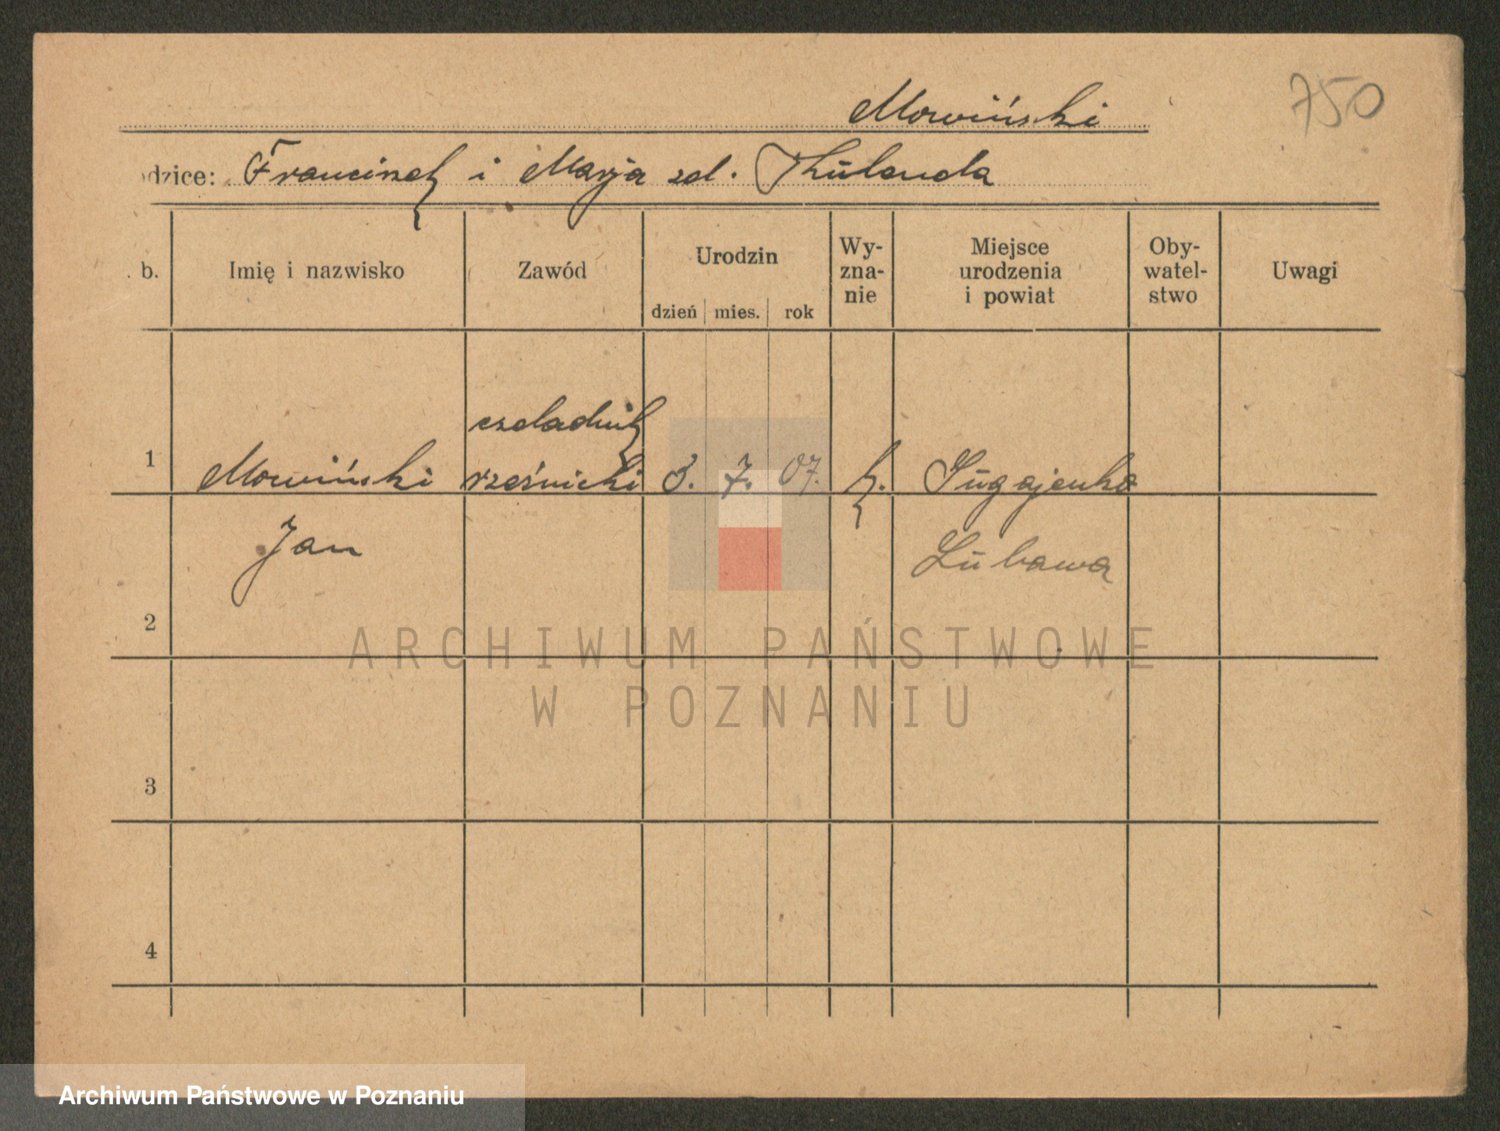 Mowiński
750
odzice: Franciszek i Marja zd. Kulanda
b. Imię i nazwisko Zawód Urodzin Wy-zna-nie Miejsce urodzenia i powiat Oby-watel-stwo Uwagi
dzień mies. rok
czeladnik
1 Mowiński rzeźnicki 3. 7. 07. k.
Jan Lubawa
2
ARCHIWUM PAŃSTWOWE
W POZNANIU
3
4
Archiwum Państwowe w Poznaniu